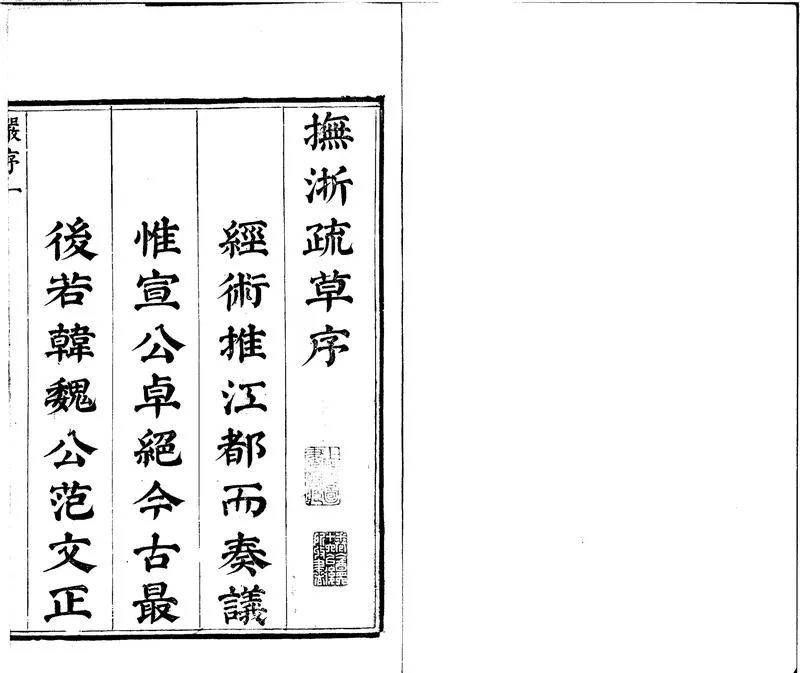 撫浙疏草序
經術推江都而奏議
惟宣公卓絕今古最
後若韓魏公范文正
嚴序一